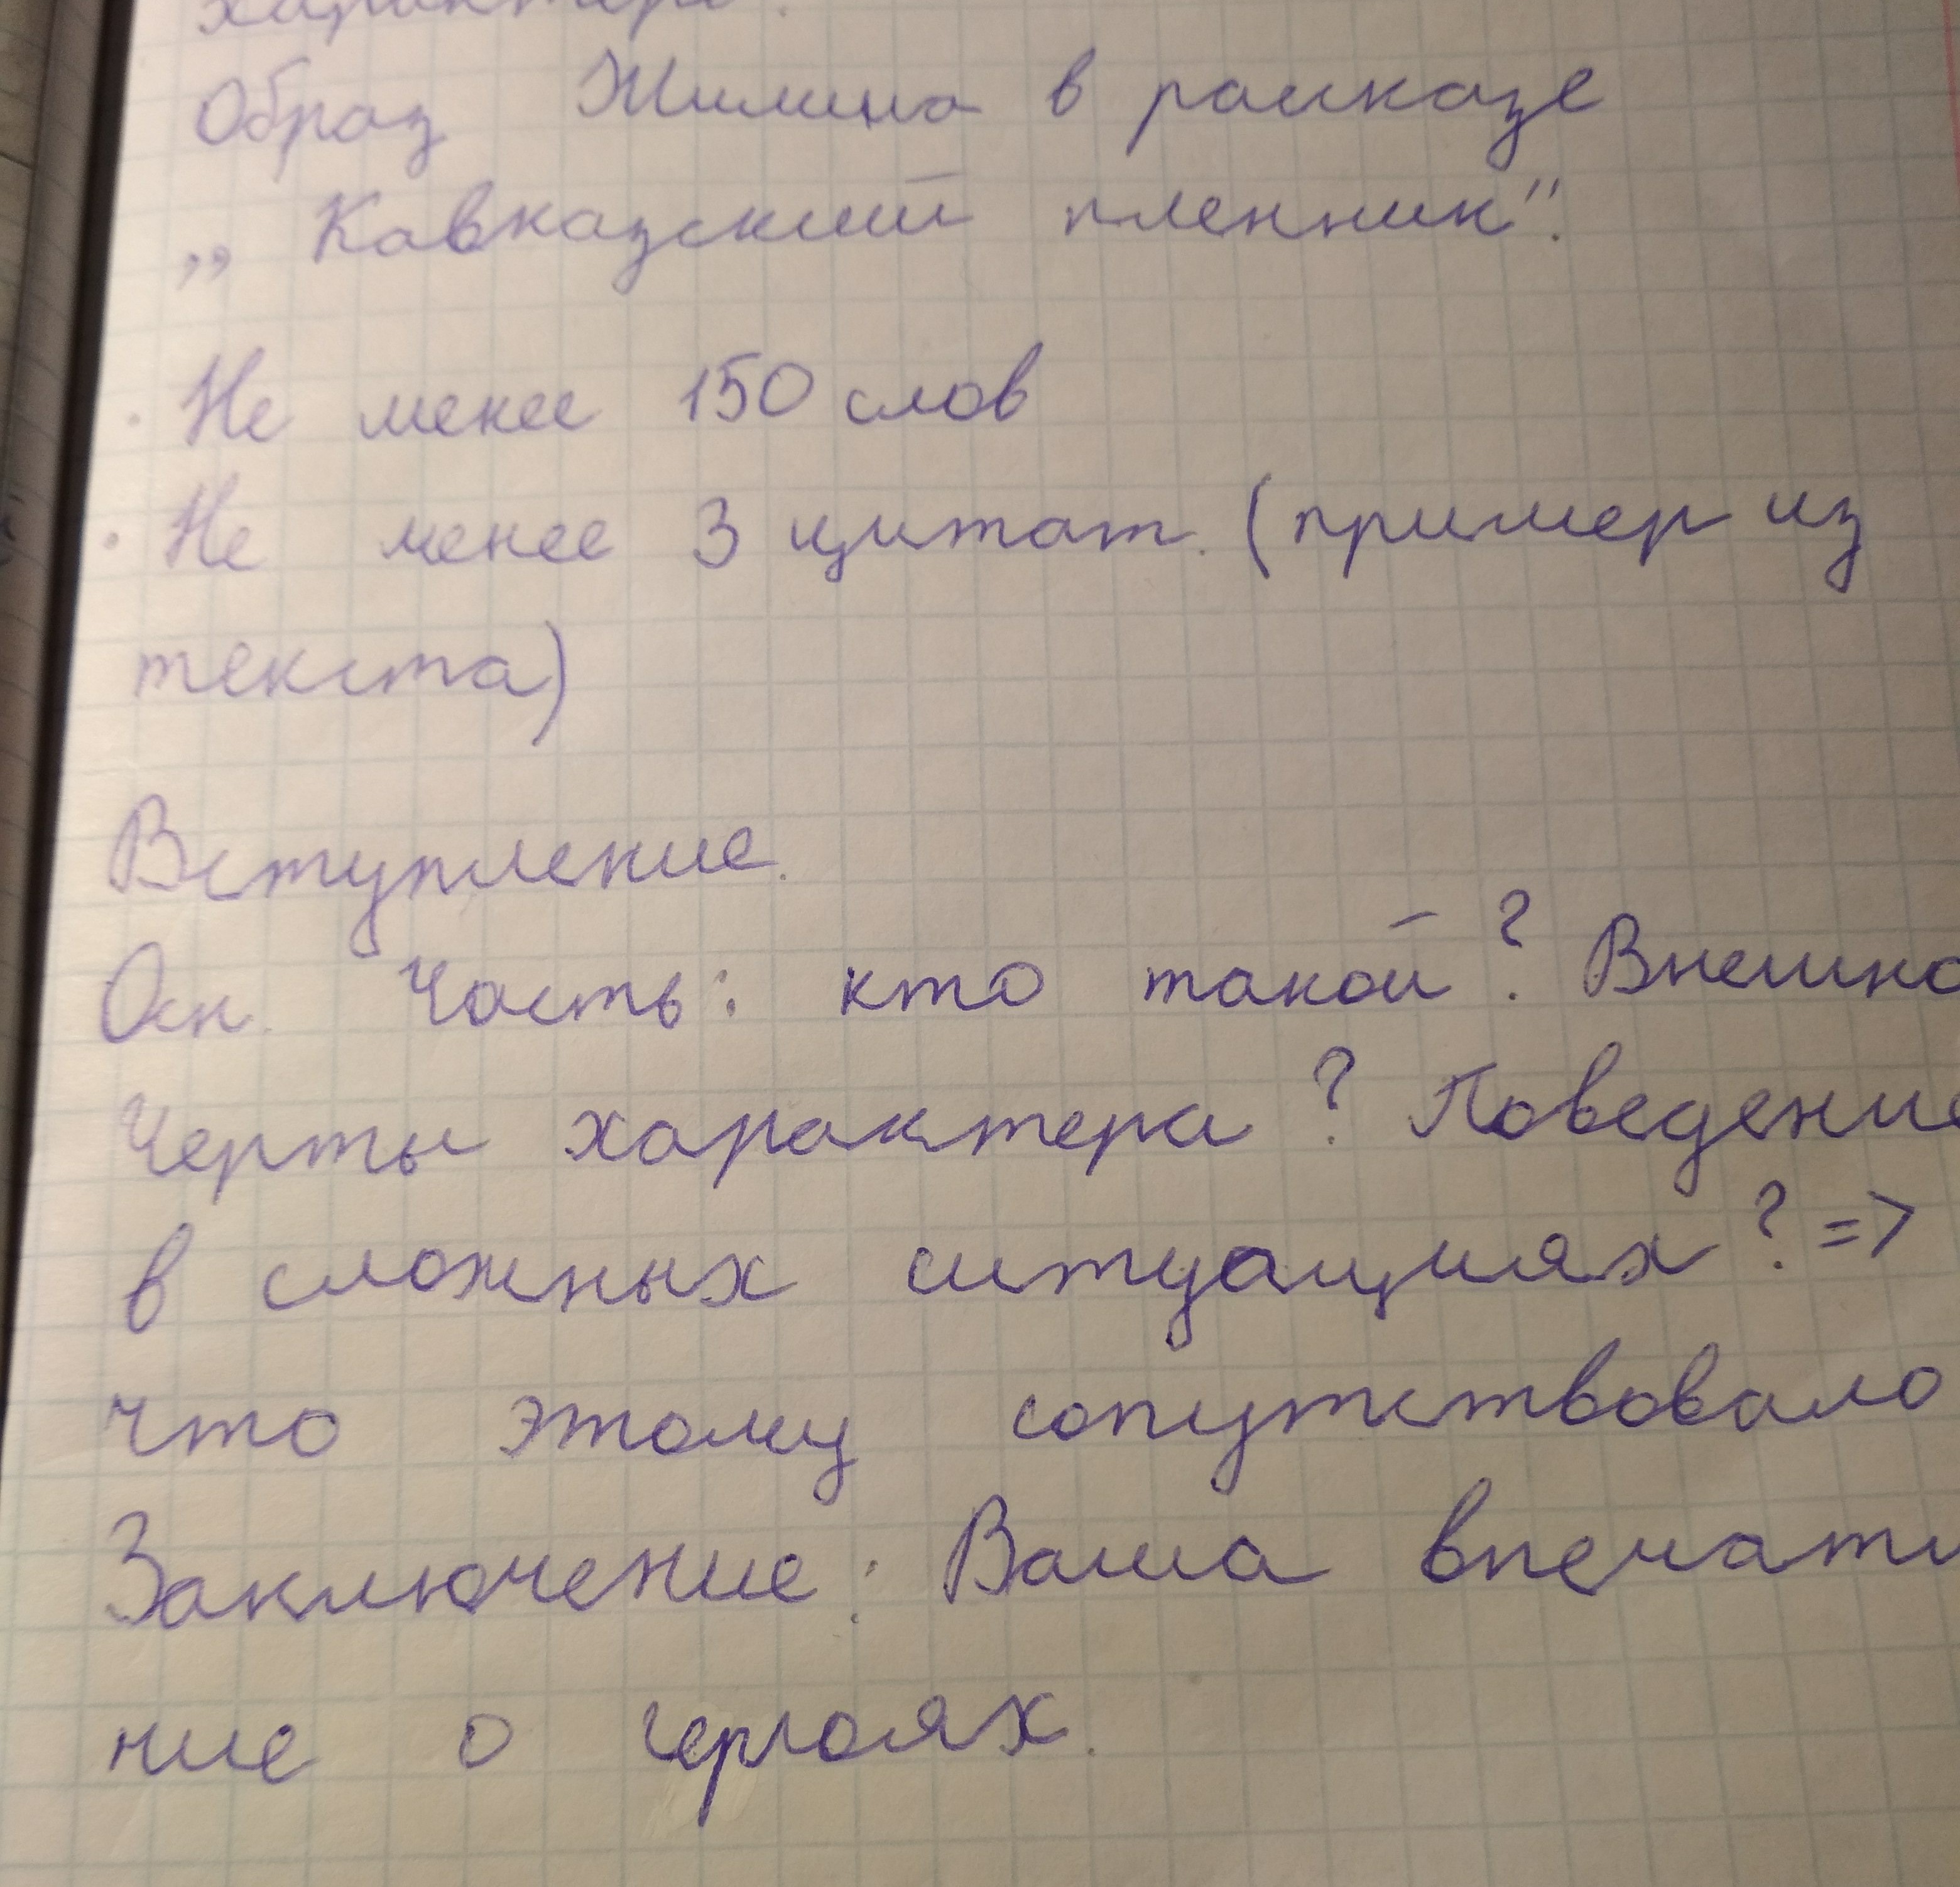 характера.
Образ Жилина в рассказе
„Кавказский пленник".
· Не менее 150 слов
· Не менее 3 цитат. (пример из
текста)
Вступление.
Осн. Часть: кто такой? Внешно
Черты характера? Поведение
в сложных ситуациях? =>
что этому сопутствовало
Заключение: Ваша впечатл
ние о героях.